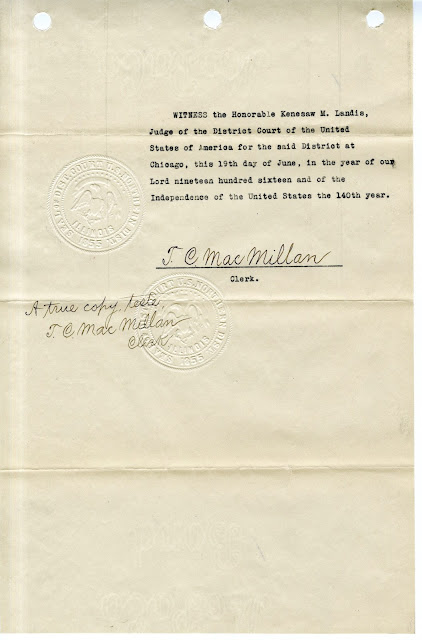 WITNESS the Honorable Kenesaw M. Landis,
Judge of the District Court of the United
States of America for the said District at
Chicago, this 19th day of June, in the year of our
Lord nineteen hundred sixteen and of the
Independence of the United States the 140th year.
T. C. MacMillan
Clerk.
A true copy, teste,
T. C. MacMillan
Clerk
ILLINOIS
1855
ILLINOIS
1855